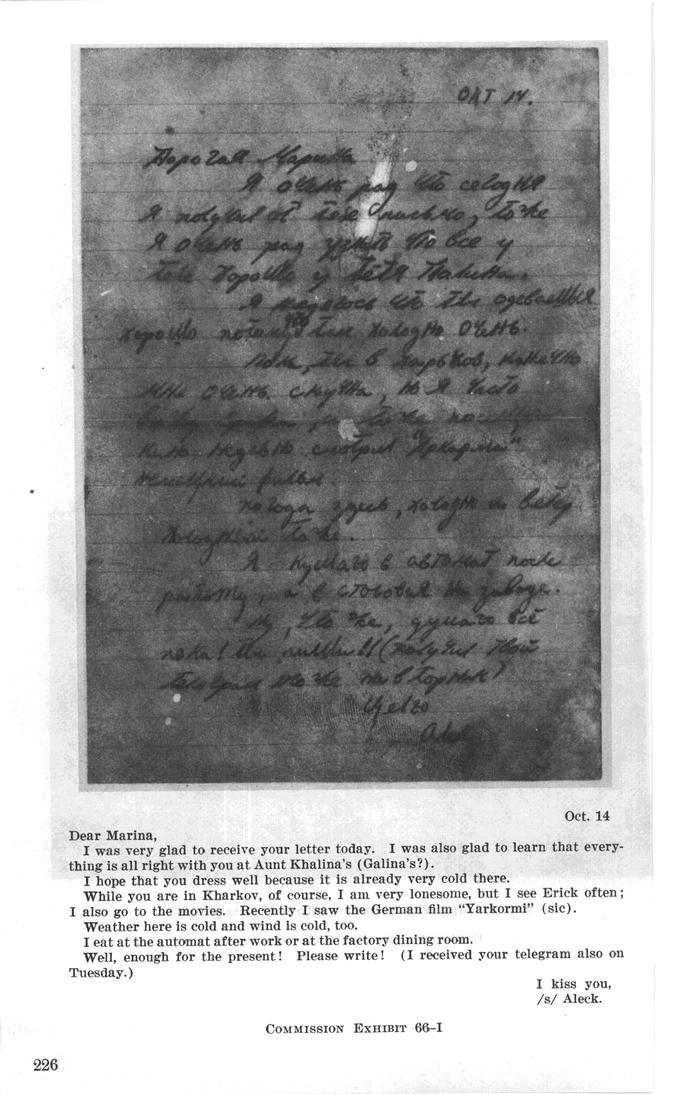 ОКТ 14.
Дорогая Марина
Я очень рад что сегодня
Я получил от тебе письмо, тоже
Я очень рад узнать что все у
тебе хорошо у тётя
Я что ты одеваешься
хорошо там холодно очень.
ты в Харьков, конечно
мне очень скучна, но я часто
кино
погода здесь, холодно и ветер
холодный тоже.
Я кушаю в автомат после
работы, а в столовая на заводе.
Ну, думаю всё
пока! (Получил твой
тоже на вторник)
Целую
Oct. 14
Dear Marina,
I was very glad to receive your letter today. I was also glad to learn that every-
thing is all right with you at Aunt Khalina's (Galina's?).
I hope that you dress well because it is already very cold there.
While you are in Kharkov, of course, I am very lonesome, but I see Erick often;
I also go to the movies. Recently I saw the German film "Yarkormi" (sic).
Weather here is cold and wind is cold, too.
I eat at the automat after work or at the factory dining room.
Well, enough for the present! Please write! (I received your telegram also on
Tuesday.)
I kiss you,
/s/ Aleck.
COMMISSION EXHIBIT 66-I
226